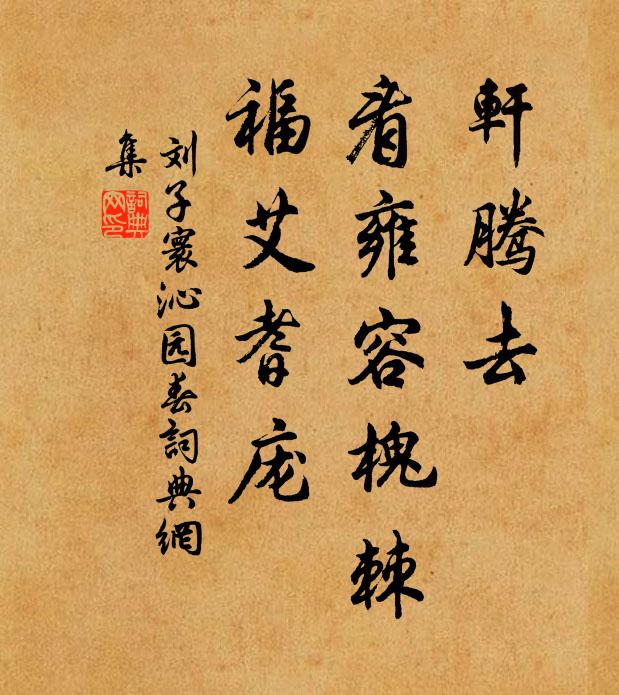 軒腾去
看雍容槐棘
福艾耆庞
刘子寰沁园春詞典網
集
詞典网印